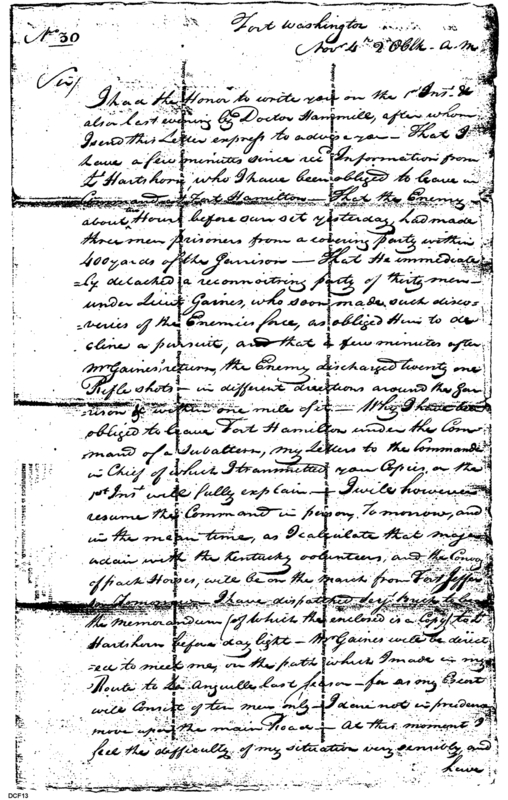 No 30
Fort Washington
Novr 4th 2 OClk. A.M.
Sir/
I had the Honor to write you on the 1st Inst. &
also last evening by Doctor Hammill, after whom
I send this Letter express to advise you – That I
have a few minutes since recd Information from
Lt Hartshorn, who I have been obliged to leave in
Command at Fort Hamilton – That the Enemy
about Hour before sun set yesterday, had made
three men prisoners from a covering party within
400 yards of the Garrison – That He immediate
=ly detached a reconnoitring party of thirty men
under Lieut Gaines, who soon made such disco=
=veries of the Enemies force, as obliged Him to de
cline a pursuit, and that a few minutes after
Mr Gaines' return, the Enemy discharged twenty one
Rifle shots – in different directions around the Gar
rison & within one mile of it – Why I have been
obliged to leave Fort Hamilton under the Com
mand of a Subaltern, my Letters to the Commandr
in Chief of which I transmitted you Copies, on the
1st Inst will fully explain – I will however
resume the Command in person, Tomorrow, and
in the mean time, as I calculate that Major
Adair with the Kentucky volunteers, and the Convoy
of pack Horses, will be on the march from Fort Jeffer
I have dispatched
the memorandum (of which the enclosed is a Copy) to Lt
Hartshorn before day light – Mr Gaines will be direct
=ed to meet me, on the path which I made in my
Route to Le Anguille last season – for as my Escort
will consist of ten men only – I dare not in prudence
move upon the main Road – At this moment I
feel the difficulty of my situation very sensibly and
have
DCF13